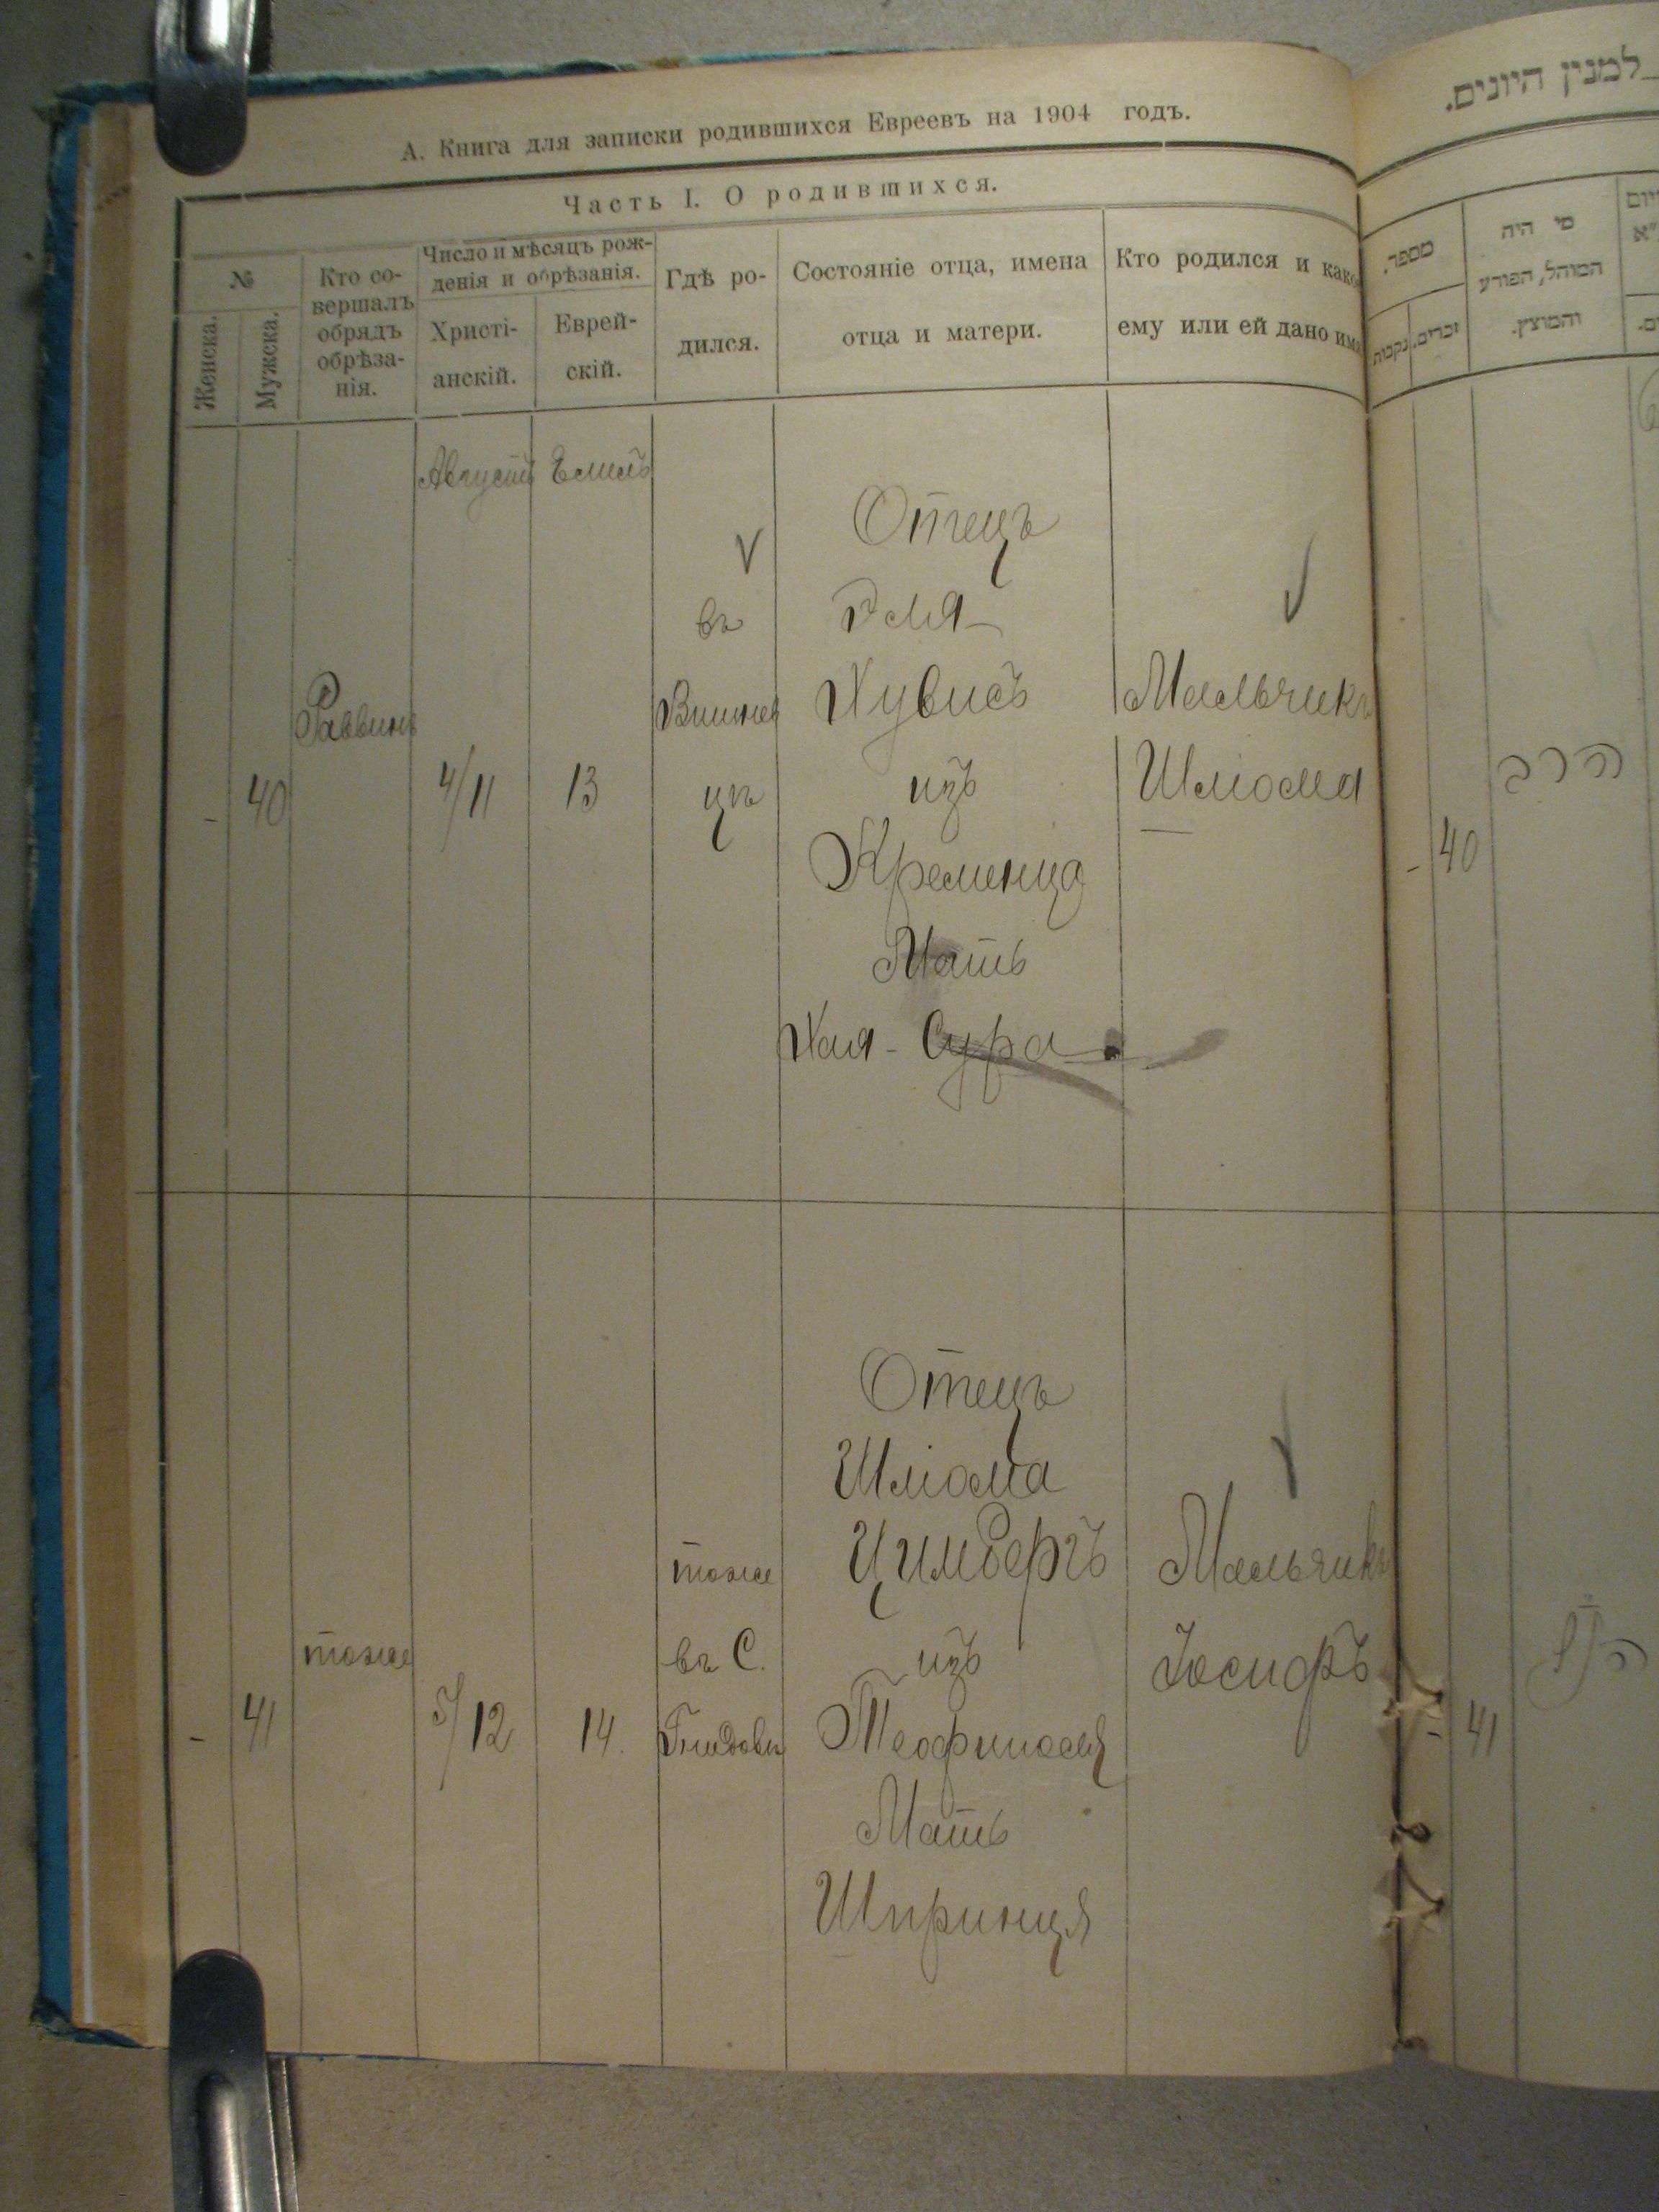 А. Книга для записки родившихся Евреевъ на 1904 годъ.
Часть I. О родившихся.
№
Женска.
Мужска.
Кто со-
вершалъ
обрядъ
обрѣза-
нія.
Число и мѣсяцъ рож-
денія и обрѣзанія.
Христі-
анскій.
Еврей-
скій.
Гдѣ ро-
дился.
Состояніе отца, имена
отца и матери.
Кто родился и како
ему или ей дано имя
Августъ
-
40
Раввинъ
4/11
13
въ
Вишнев
цѣ
Отецъ
Эля
Хувисъ
изъ
Кременца
Мать
Хая - Сура
Мальчикъ
Шлиома
-
41
тоже
5/12
14.
тоже
въ С.
Отецъ
Шлиома
Цимбергъ
изъ
Теофиполя
Мать
Шпринця
Мальчикъ
Іосифъ
למנין היונים.
מספר.
נקבות
זכרים.
מי היה
המוהל, הפורע
והמוצץ.
-
40
הרב
-
41